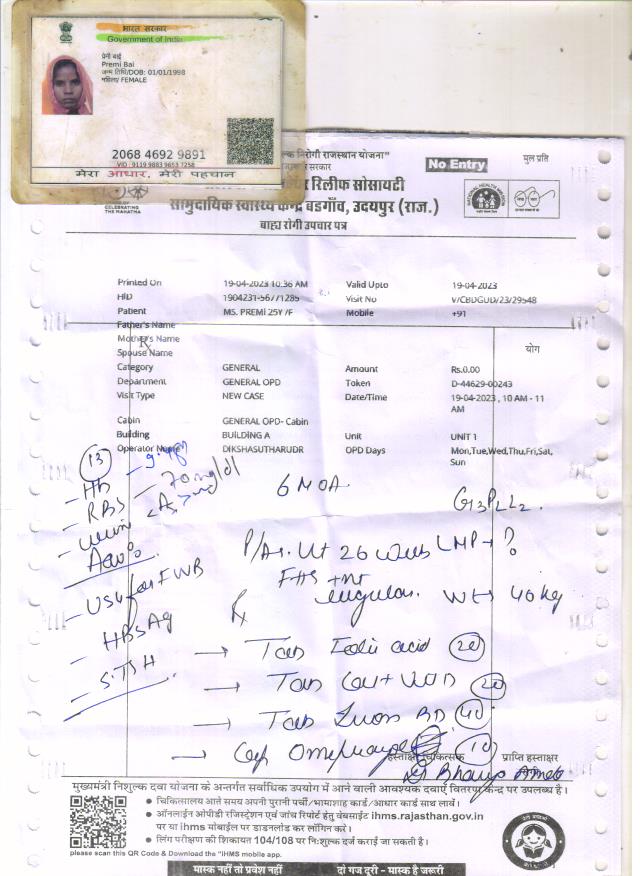 भारत सरकार
Government of India
प्रेमी बाई
Premi Bai
जन्म तिथि/DOB: 01/01/1998
महिला/ FEMALE
2068 4692 9891
VID : 9119 9883 9653 7258
मेरा आधार, मेरी पहचान
निरोगी राजस्थान योजना"
No Entry
मुल प्रति
सरकार
रिलीफ सोसायटी
CELEBRATING
THE MAHATMA
सामुदायिक स्वास्थ्य केन्द्र बडगाँव, उदयपुर (राज.)
बाह्य रोगी उपचार पत्र
Printed On 19-04-2023 10:36 AM Valid Upto 19-04-2023
HID 1904231-56771285 Visit No V/CBDGUD/23/29548
Patient MS. PREMI 25Y /F Mobile +91
Father's Name
Mother's Name
Rx
योग
Spouse Name
Category GENERAL Amount Rs.0.00
Department GENERAL OPD Token D-44629-00243
Visit Type NEW CASE Date/Time 19-04-2023 , 10 AM - 11 AM
Cabin GENERAL OPD- Cabin
Building BUILDING A Unit UNIT 1
Operator Name DIKSHASUTHARUDR OPD Days Mon,Tue,Wed,Thu,Fri,Sat,
Sun
13
- Hb -
- RBS - 70 mg/dl
6 MOA
G3P2L2
- Urine
P/A. Ut 26 weeks LMP → ?
- USG for FWB
FHS +nt
regular. Wt → 40 kg
- HBSAg
Rx
- S.TSH
→ Tab Folic acid 20
→ Tab Cal + Vit D 20
→ Tab BD 40
→ Cap Omeprazole 10
हस्ताक्षर चिकित्सक
प्राप्ति हस्ताक्षर
मुख्यमंत्री निशुल्क दवा योजना के अन्तर्गत सर्वाधिक उपयोग में आने वाली आवश्यक दवाएं वितरण केन्द्र पर उपलब्ध है।
• चिकित्सालय आते समय अपनी पुरानी पर्ची/भामाशाह कार्ड/आधार कार्ड साथ लावें।
• ऑनलाईन ओपीडी रजिस्ट्रेशन एवं जांच रिपोर्ट हेतु वेबसाईट ihms.rajasthan.gov.in
पर या ihms मोबाईल पर डाउनलोड कर लॉगिन करे।
• लिंग परीक्षण की शिकायत 104/108 पर नि:शुल्क दर्ज कराई जा सकती है।
please scan this QR Code & Download the "iHMS mobile app.
मास्क नहीं तो प्रवेश नहीं
दो गज दूरी - मास्क है जरूरी